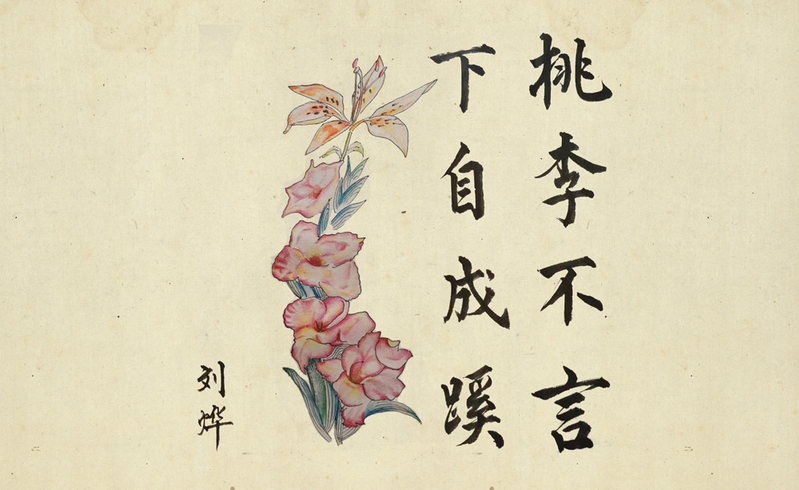 桃李不言
下自成蹊
刘烨